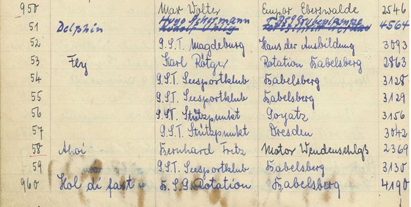 950 Max Walter Empor Eberswalde 2546
51 Delphin 4564
52 G.S.T. Magdeburg Haus der Ausbildung 3093
53 Fey Karl Rötger Rotation Babelsberg 2863
54 G.S.T. Seesportklub Babelsberg 3128
55 G.S.T. Seesportklub Babelsberg 3129
56 G.S.T. Stützpunkt Goyatz 3156
57 G.S.T. Stützpunkt Dresden 3042
58 Ahoi Bernhard Fritz Motor Wendenschloß 2369
59 G.S.T. Seesportklub Babelsberg 3130
960 Hol di fast B.S.G. Rotation Babelsberg 4190